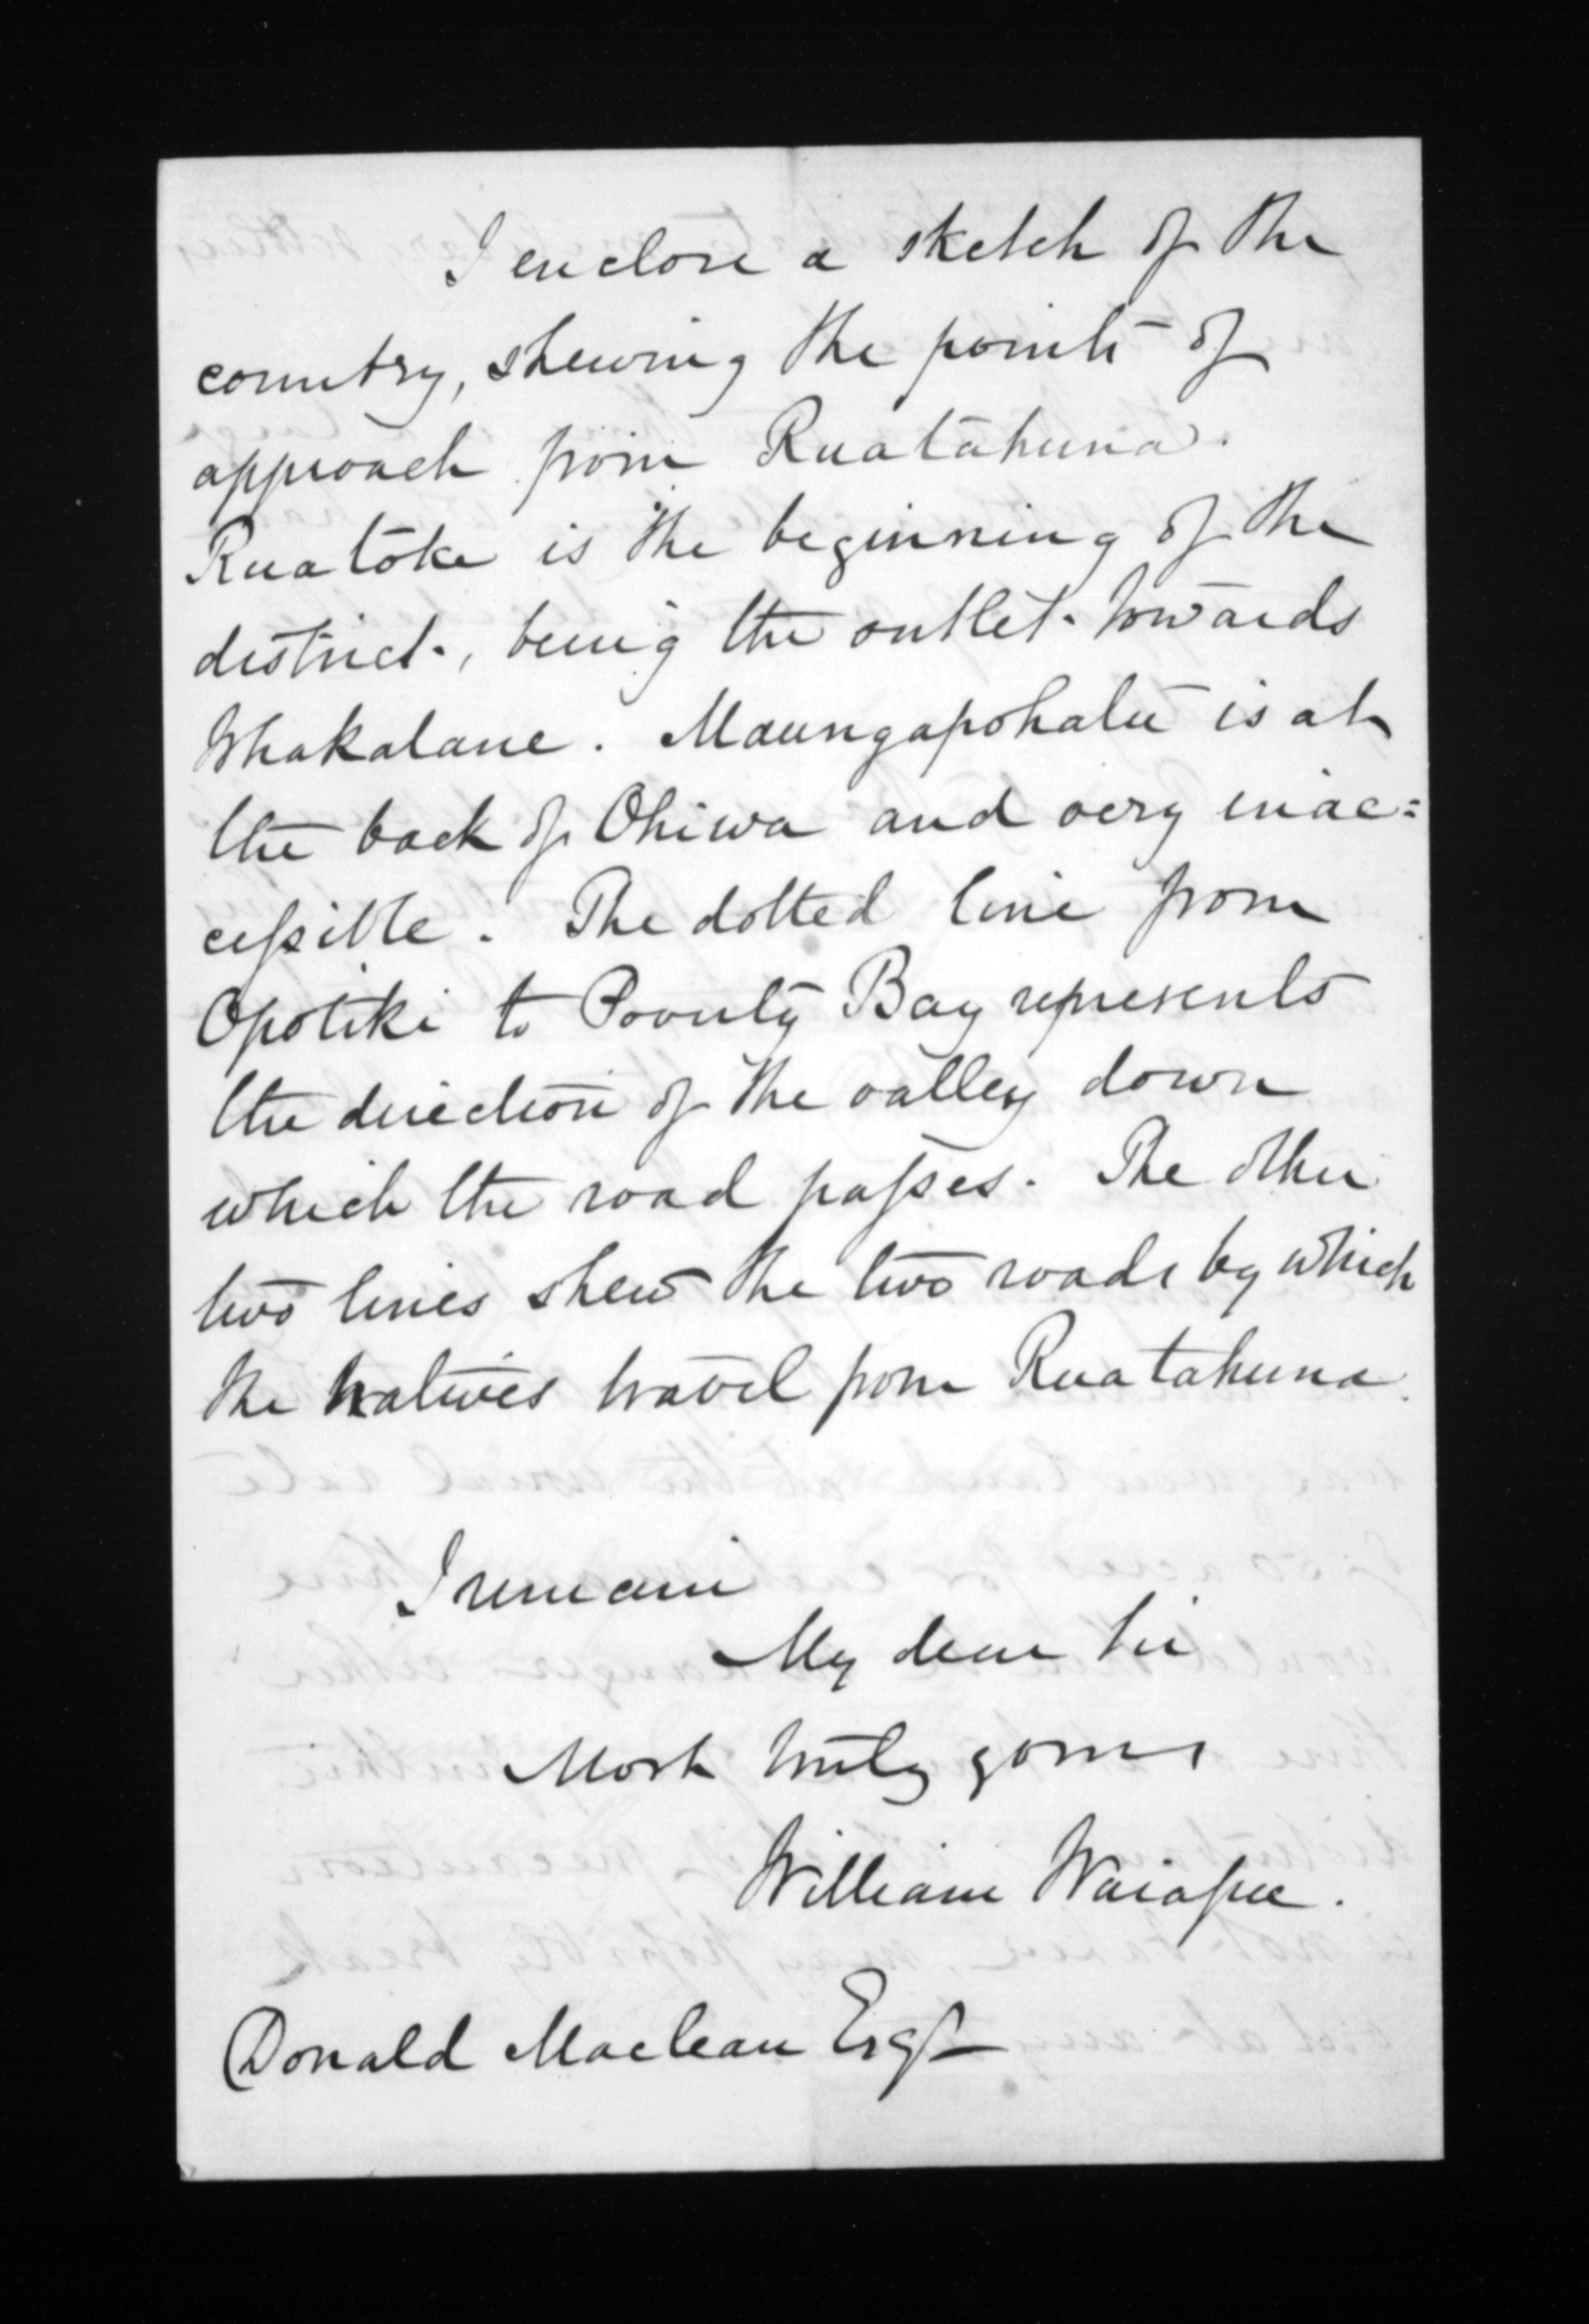 I enclose a sketch of the
country, shewing the points of
approach from Ruatahuna.
Ruatoke is the beginning of the
district, being the outlet towards
Whakatane. Maungapohatu is at
the back of Ohiwa and very inac=
cessible. The dotted line from
Opotiki to Poverty Bay represents
the direction of the valley down
which the road passes. The other
two lines shew the two roads by which
the natives travel from Ruatahuna.
I remain
My dear Sir
Most truly yours
William Waiapu.
Donald Maclean Esqr